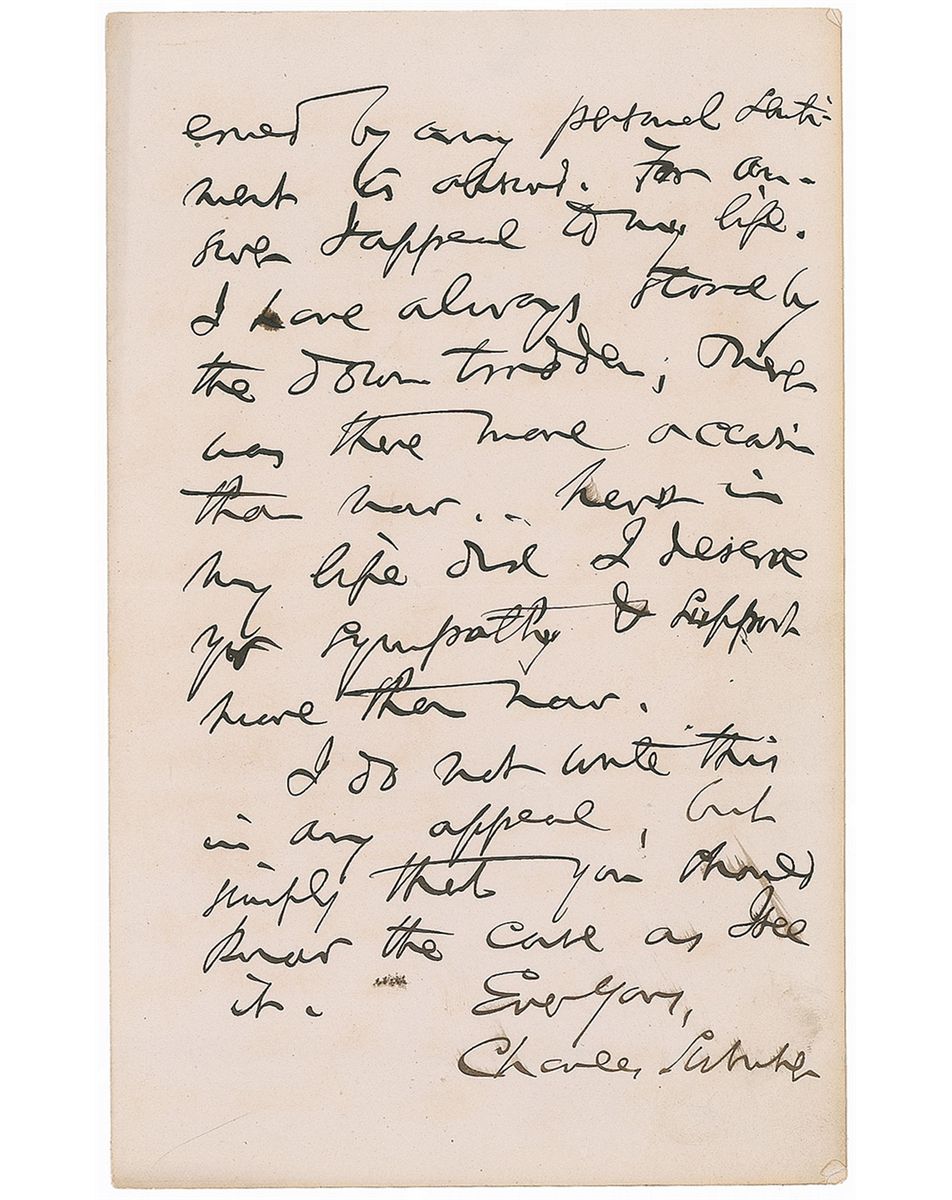 erned by any personal senti-
ment is absurd. For an-
swer I appeal to my life.
I have always stood by
the down trodden; never
was there more occasion
than now. . Never in
my life did I deserve
yr sympathy & support
more than now.
I do not write this
in any appeal, but
simply that you should
know the case as I see
it. Ever Yours,
Charles Sumner